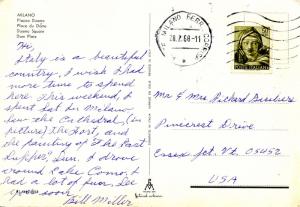 MILANO
Piazza Duomo
Place du Dôme
Duomo Square
Dom Platz
Hi,
Italy is a beautiful
country. I wish I had
more time to spend
here. This weekend, I
spent Sat. in Milano
saw the Cathedral, (in
picture) the Fort, and
the painting of "The Last
Supper". Sun. I drove
around Lake Como. I
had a lot of fun. See
you soon
Bill Miller
MILANO FERR.
28.2.68-11
POSTE ITALIANE
Mr & Mrs Richard
Pinecrest Drive
Essex Jct. Vt. 05452
USA